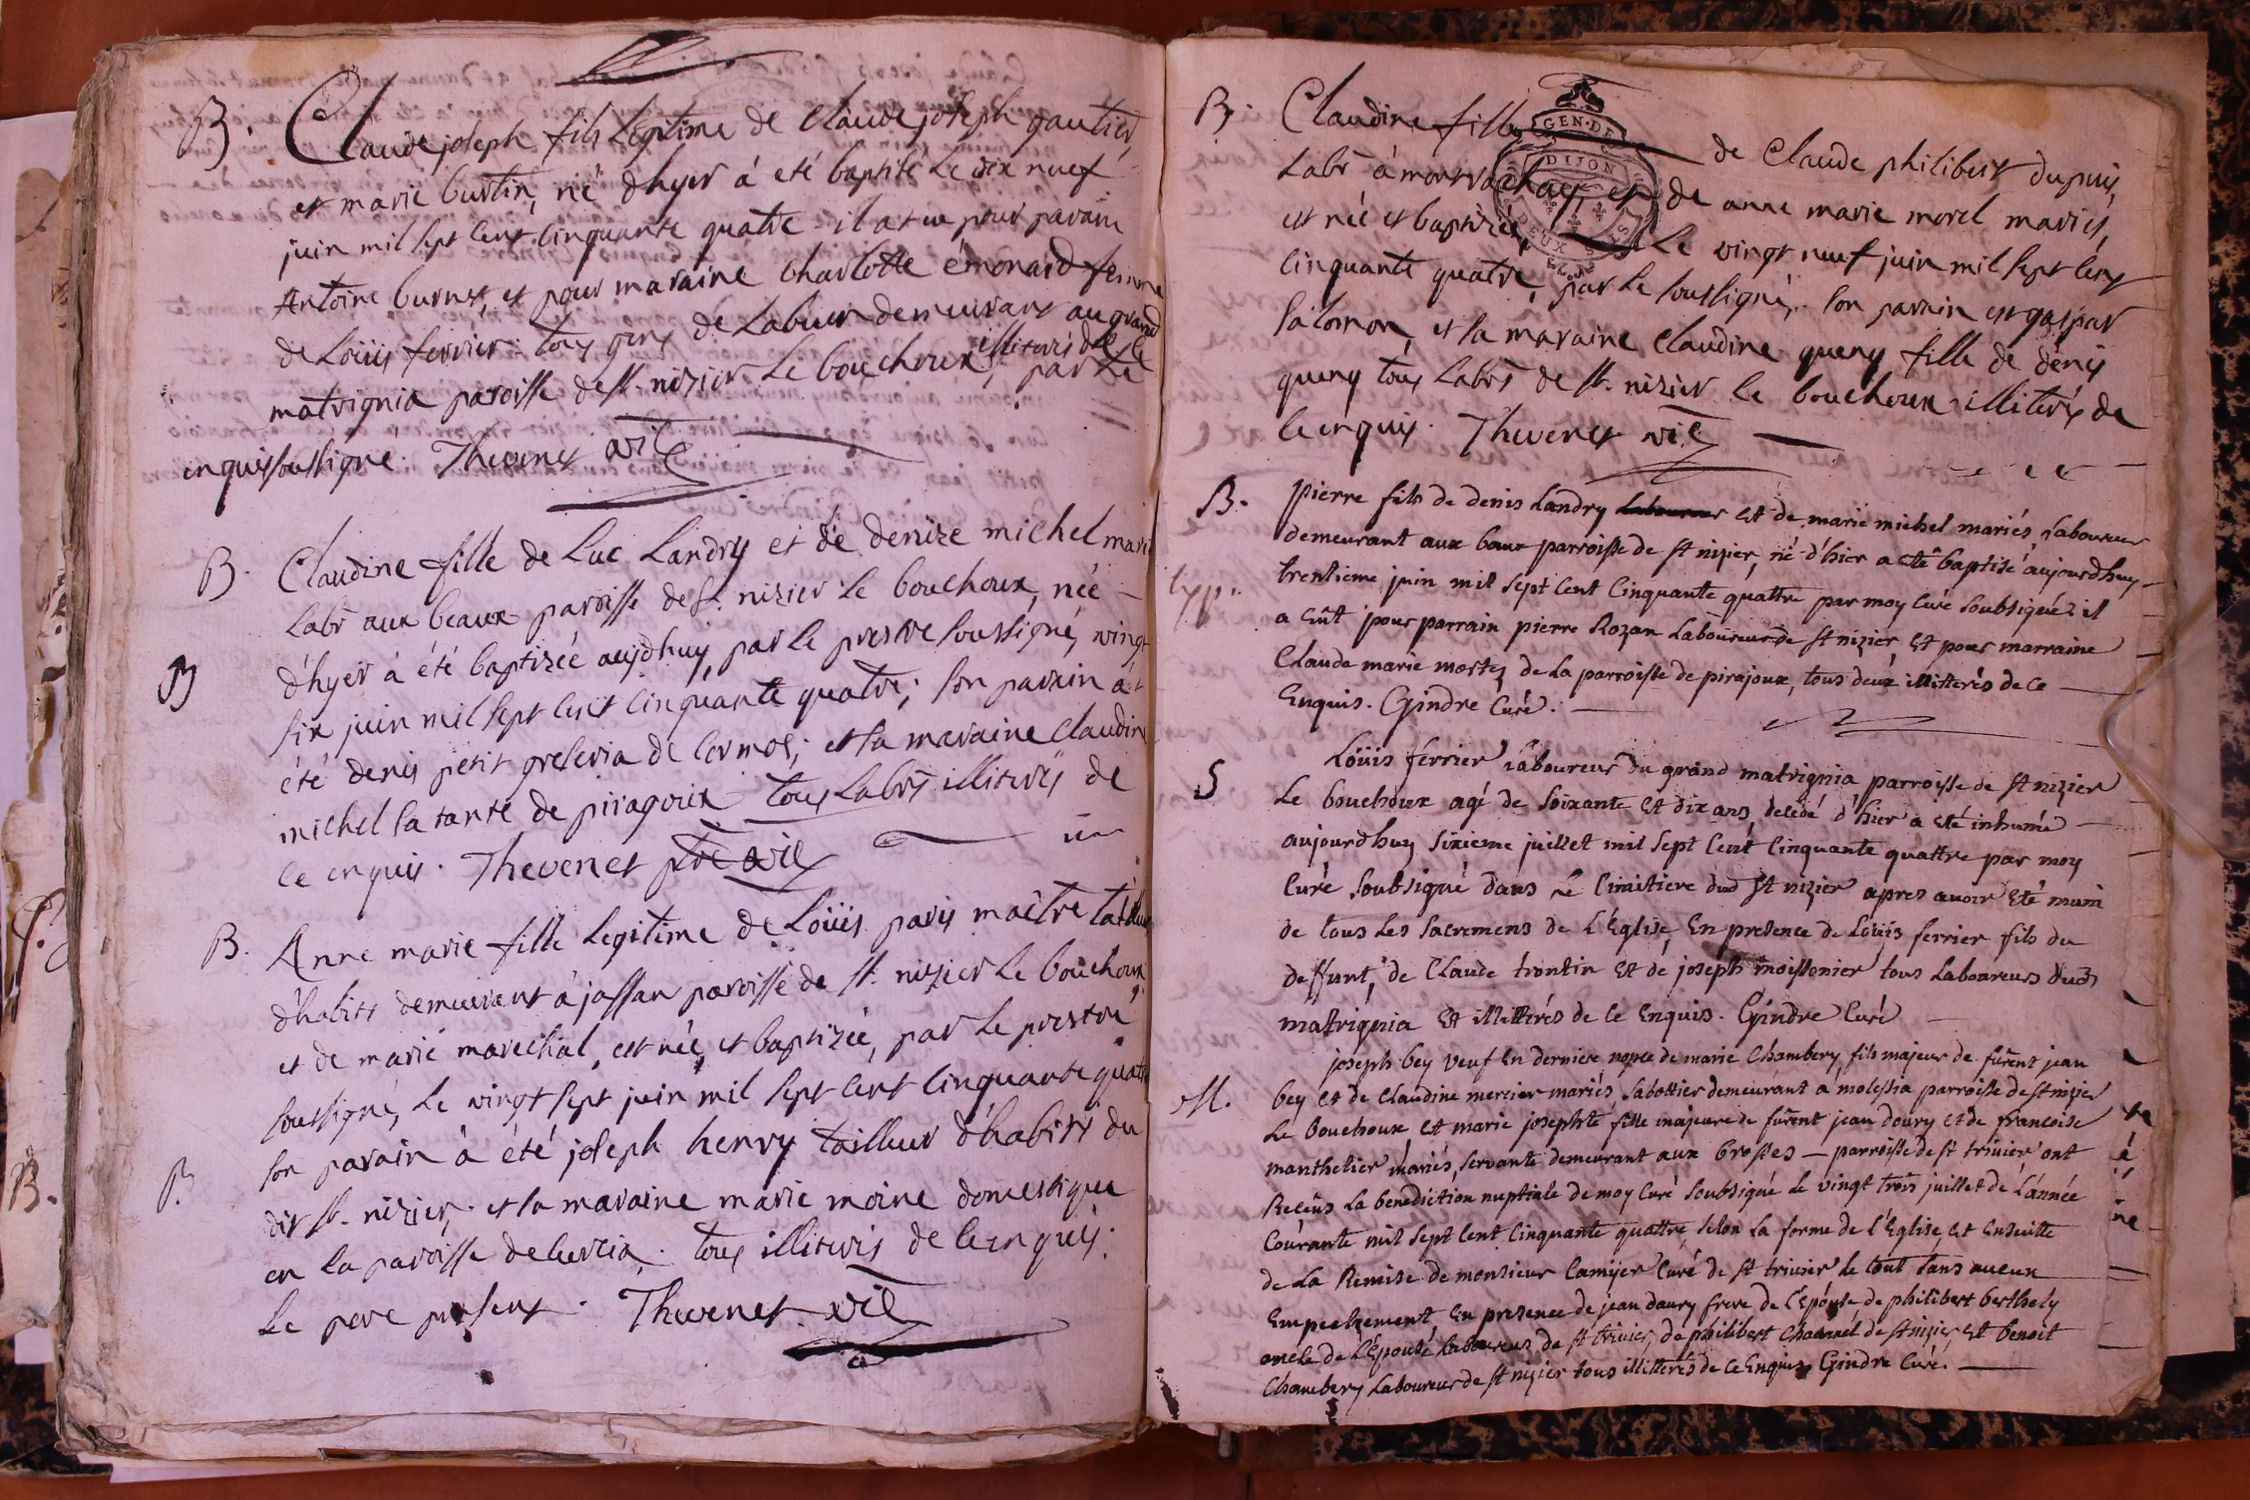 B. Claude joseph fils legitime de Claude joseph gautier,
et marie burtin, né d'hyer à eté baptisé le dix neuf
juin mil sept cent cinquante quatre il at eu pour parain
Antoine burnet, et pour maraine charlotte émonard femme
de Loüis ferrier: tous gens de Labeur demeurant au grand
matrignia paroisse de st. nizier Le bouchoux, illiterés de ce par Le
enquis soussigné. Thevenet vic
B. Claudine fille de Luc Landry et de denize michel mariés
Labrs aux beaux paroisse de st. nizier le bouchoux, née
d'hyer à été baptizée aujdhuy, par le prestre soussigné, vingt
B
six juin mil sept cent cinquante quatre; son parain a
été denis petit greleria de Cormos; et sa maraine Claudine
michel sa tante de piragoux tous Labrs illiterés de
ce enquis. Thevenet ptre vic
B. Anne marie fille Legitime de Loüis paris maître tailleur
d'habits demeurant à jassan paroisse de st. nizier Le bouchoux
et de marie marechal, est née, et baptizée, par Le prestre
soussigné, Le vingt sept juin mil sept cent cinquante quatre
son parain à été joseph henry tailleur d'habits du
B.
dit st. nizier; et sa maraine marie moine domestique
en la paroisse de curcia. tous illiterés de ce enquis.
Le pere present. Thevenet vic
B. Claudine fille de Claude philibert dupuis,
GEN. DE
DIJON
DEUX
Labr à montrachay, et de anne marie morel mariés,
est née et baptizée, Le vingt neuf juin mil sept cent
cinquante quatre, par Le soussigné; son parain est gaspar
salomon, et sa maraine Claudine queny fille de denis
queny tous Labrs de st. nizier le bouchoux illiterés de
ce enquis. Thevenet vic
B. Pierre fils de denis Landry et de marie michel mariés Laboureur
demeurant aux baux parroisse de st nizier, né d'hier a eté baptisé aujourdhuy
trentieme juin mil sept cent Cinquante quattre par moy Curé soubsigné il
a eût pour parrain pierre Rozan Laboureur de st nizier, et pour marraine
Claude marie mortez de La parroisse de pirajoux, tous deux illitterés de ce
Enquis. Gindre Curé.
S Loüis ferrier Laboureur du grand matrignia parroisse de st nizier
Le bouchoux agé de soixante et dix ans, decedé d'hier a eté inhumé
aujourdhuy sixieme juillet mil sept Cent Cinquante quattre par moy
Curé soubsigné dans Le Cimitiere dud st nizier apres avoir eté muni
de tous Les sacremens de L'Eglise, En presence de Loüis ferrier fils du
deffunt, de Claude trontin et de joseph moissenier tous Laboureurs dud
matrignia et illitterés de ce enquis. Gindre Curé
joseph bey veuf en derniere nopce de marie Chambery, fils majeur de furent jean
M. bey et de Claudine mercier mariés, sabottier demeurant a molessia parroisse de st nizier
Le bouchoux et marie josephte fille majeure de furent jean doury et de francoise
manthelier mariés, servante demeurant aux brosses — parroisse de st trivier ont
Receûs La benediction nuptiale de moy Curé soubsigné le vingt trois juillet de L'année
Courante mil sept cent Cinquante quattre, selon La forme de L'Eglise, et ensuitte
de La Remise de monsieur Camijer Curé de st trivier le tout sans aucun
Empechement, En presence de jean doury frere de L'Epouse de philibert berthely
oncle de L'Epouse Laboureur de st trivier, de philibert Charnel de st nizier et benoit
Chambery Laboureur de st nizier tous illitterés de ce enquis. Gindre Curé.